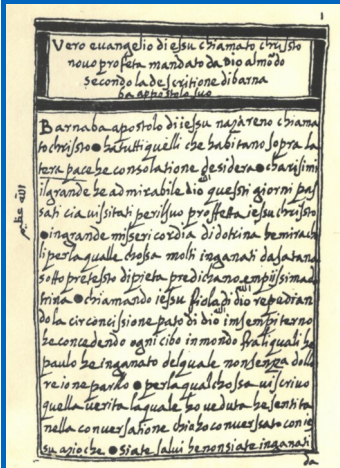 1
Vero euangelio di iessu chiamato chrissto
nouo profeta mandato da Dio al mōdo
secondo la descritione di barna
ba appostolo suo
Barnaba apostolo di iessu nazareno chiama
to chrissto ha tutti quelli che habitano sopra la
tera pace he consolatione desidera charisimi
il grande he admirabile dio questi giorni pas
sati ci a uissitati per il suo proffetta iesu chrissto
in grande missericordia di dotrina he miracu
li per la qualle chossa molti inganati da satana
sotto pretessto di pieta predichano empiissima
trina chiamando iessu fiolo di dio repudian
do la circoncissione pato di dio in sempiterno
he concedendo ogni cibo in mondo fra li quali he
paulo he inganato del quale non senza dollo
re ione parlo per la qual chossa ui scriuo
quella uerita la quale ho ueduta he sentita
nella conuersatione chio ho conuerssato con ie
su azioche siate salui he non siate inganati
da